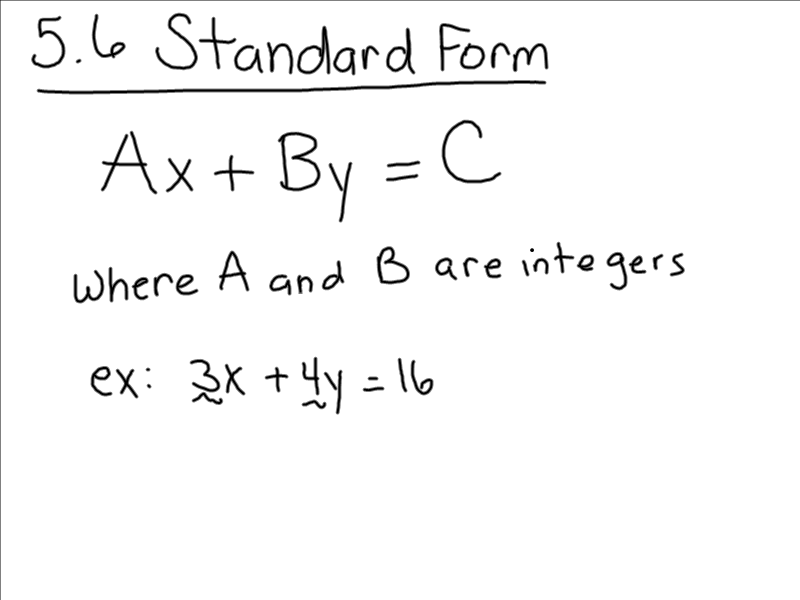 5.6 Standard Form
Ax + By = C
where A and B are integers
ex: 3x + 4y = 16